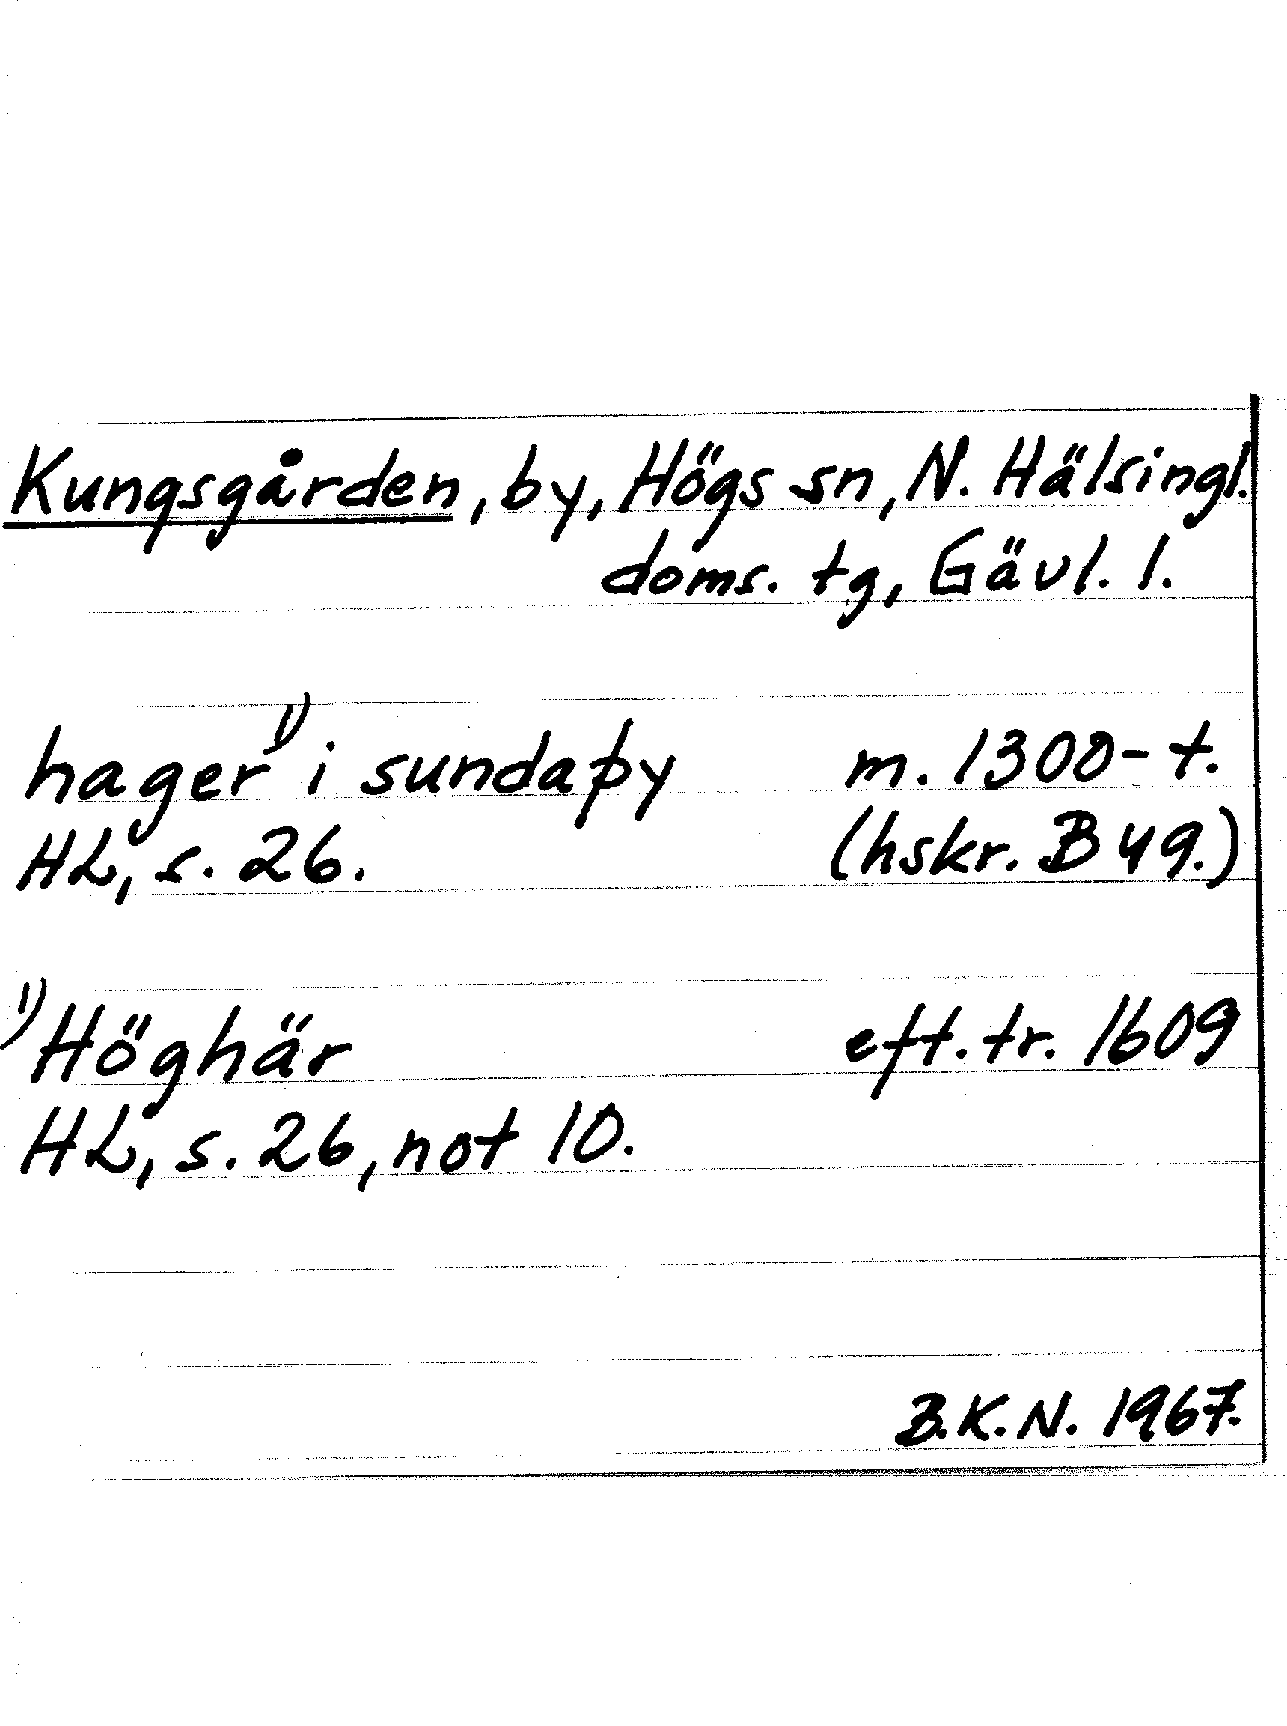 Kungsgården, by, Högs sn, N. Hälsingl.
doms. tg, Gävl. l.
hager¹⁾ i sundaþy m. 1300-t.
HL, s. 26. (hskr. B 49.)
¹⁾Höghär eft. tr. 1609
HL, s. 26, not 10.
B.K.N. 1967.